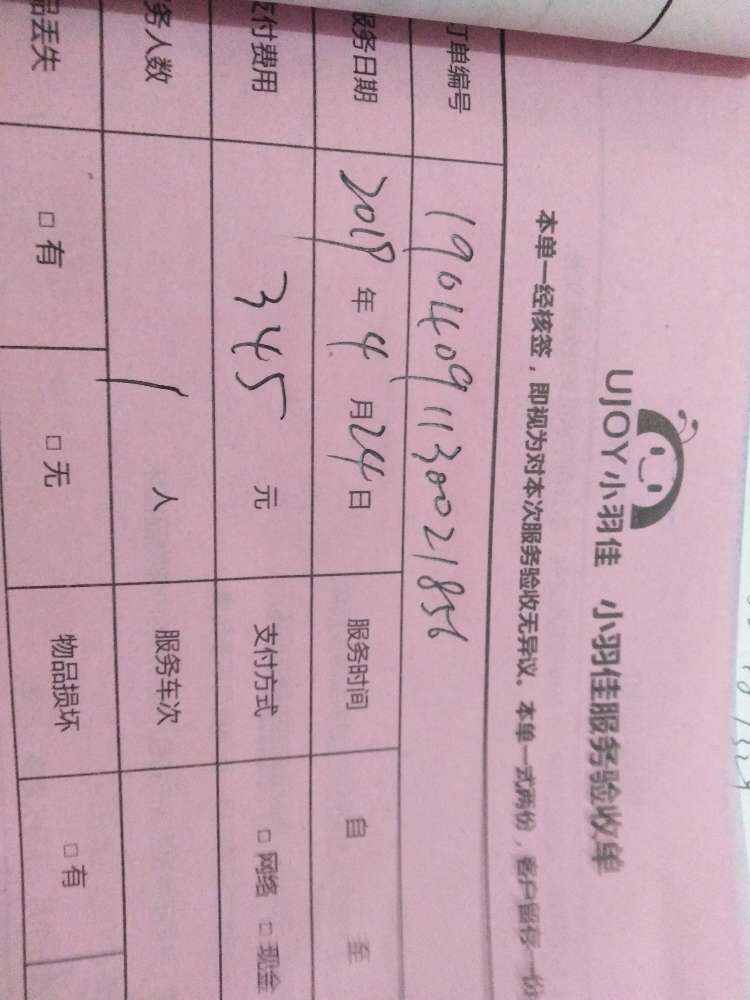 UJOY小羽佳 小羽佳服务验收单
本单一经核签，即视为对本次服务验收无异议。本单一式两份，客户留存一份
订单编号 1904091130021856
服务日期 2019年4月24日 服务时间 自 至
支付费用 345 元 支付方式 □网络 □现金
务人数 1 人 服务车次
品丢失 □有 □无 物品损坏 □有